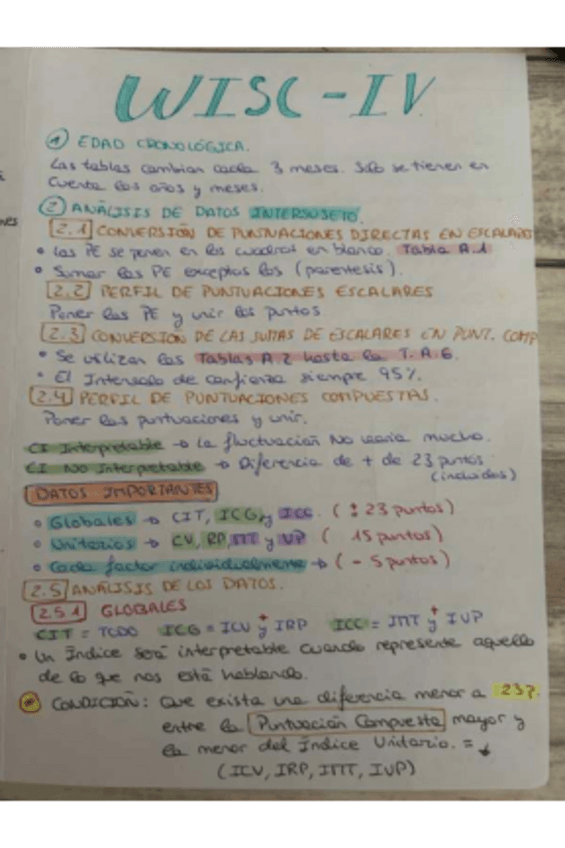 WISC-IV
1 EDAD CRONOLÓGICA.
Las tablas cambian cada 3 meses. Solo se tienen en
cuenta los años y meses.
2 ANÁLISIS DE DATOS INTERSUJETO.
2.1 CONVERSIÓN DE PUNTUACIONES DIRECTAS EN ESCALARES
• Las PE se ponen en los cuadros en blanco. Tabla A.1
• Sumar las PE exceptos los (parentesis).
2.2 PERFIL DE PUNTUACIONES ESCALARES
Poner las PE y unir los puntos.
2.3 CONVERSIÓN DE LAS SUMAS DE ESCALARES EN PUNT. COMP
• Se utilizan las Tablas A.2 hasta la T. A.6.
• El Intervalo de confianza siempre 95%.
2.4 PERFIL DE PUNTUACIONES COMPUESTAS.
Poner las puntuaciones y unir.
CI Interpretable → La fluctuación NO varia mucho.
CI NO Interpretable → Diferencia de + de 23 puntos
(incluidos)
DATOS IMPORTANTES
• Globales → CIT, ICG y ICC. (± 23 puntos)
• Unitarios → CV, RP, MT y VP ( 15 puntos)
• Cada factor individualmente → (- 5 puntos)
2.5 ANÁLISIS DE LOS DATOS.
2.5.1 GLOBALES
CIT = TODO ICG = ICV y + IRP ICC = IMT y + IVP
• Un Índice será interpretable cuando represente aquello
de lo que nos está hablando.
* CONDICIÓN: Que exista una diferencia menor a 23p.
entre la Puntuación Compuesta mayor y
la menor del Índice Unitario. = ↓
(ICV, IRP, IMT, IVP)